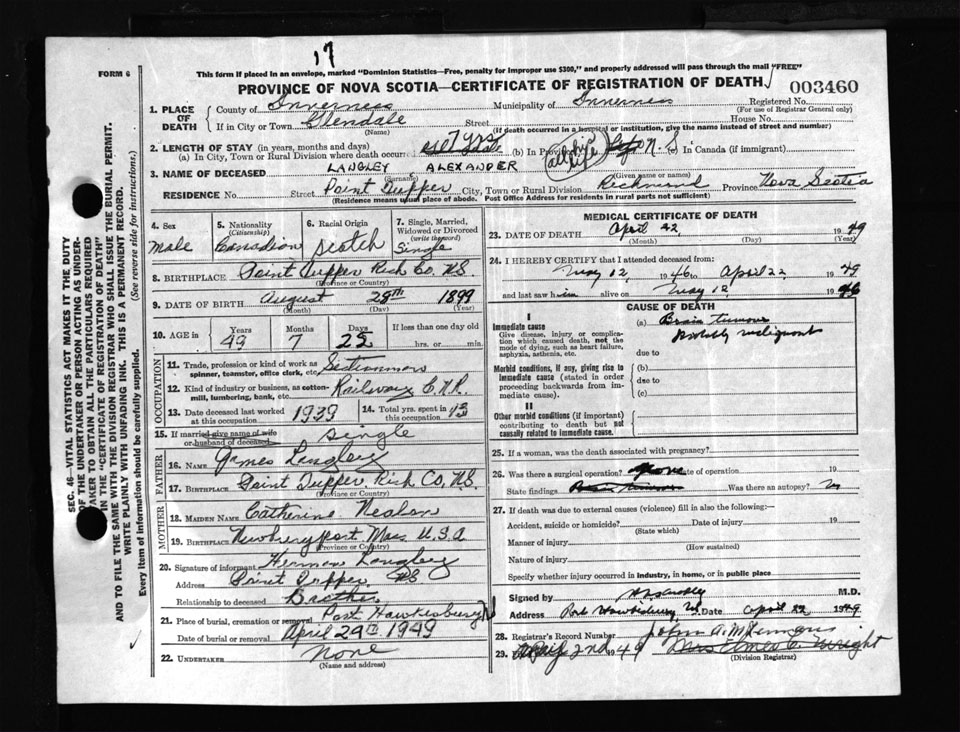 17
FORM 6
This form if placed in an envelope, marked "Dominion Statistics—Free, penalty for improper use $300," and properly addressed will pass through the mail "FREE"
PROVINCE OF NOVA SCOTIA—CERTIFICATE OF REGISTRATION OF DEATH
003460
1. PLACE OF DEATH
County of Inverness
Municipality of Inverness
Registered No.
(For use of Registrar General only)
If in City or Town Glendale
Street
House No.
(Name)
(If death occurred in a hospital or institution, give the name instead of street and number)
2. LENGTH OF STAY (in years, months and days)
(a) In City, Town or Rural Division where death occurred 7 yrs
(b) In Province all his life
(c) In Canada (if immigrant)
3. NAME OF DECEASED LANGLEY ALEXANDER
(Surname)
(Given name or names)
RESIDENCE No. Street Point Tupper City, Town or Rural Division Richmond Province Nova Scotia
(Residence means usual place of abode. Post Office Address for residents in rural parts not sufficient)
4. Sex
Male
5. Nationality (Citizenship)
Canadian
6. Racial Origin
Scotch
7. Single, Married, Widowed or Divorced (write the word)
Single
8. BIRTHPLACE Point Tupper Rich Co. N.S.
(Province or Country)
9. DATE OF BIRTH August 28th 1899
(Month) (Day) (Year)
10. AGE in
Years Months Days If less than one day old
49 7 25 hrs. or min.
OCCUPATION
11. Trade, profession or kind of work as spinner, teamster, office clerk, etc. Sectionman
12. Kind of industry or business, as cotton-mill, lumbering, bank, etc. Railway C.N.R.
13. Date deceased last worked at this occupation 1939
14. Total yrs. spent in this occupation 13
15. If married give name of wife or husband of deceased single
FATHER
16. NAME James Langley
17. BIRTHPLACE Point Tupper Rich Co, N.S.
(Province or Country)
MOTHER
18. MAIDEN NAME Catherine
19. BIRTHPLACE Newburyport Mass U.S.A
(Province or Country)
20. Signature of informant Herman Langley
Address Point Tupper NS
Relationship to deceased Brother
21. Place of burial, cremation or removal Port Hawkesbury
Date of burial or removal April 24th 1949
22. UNDERTAKER None
(Name and address)
MEDICAL CERTIFICATE OF DEATH
23. DATE OF DEATH April 22, 1949
(Month) (Day) (Year)
24. I HEREBY CERTIFY that I attended deceased from:
May 12, 1946 to April 22 1949
and last saw him alive on May 12, 1946
CAUSE OF DEATH
I
Immediate cause
Give disease, injury or complication which caused death, not the mode of dying, such as heart failure, asphyxia, asthenia, etc.
(a) Brain tumour
Probably malignant
due to
Morbid conditions, if any, giving rise to immediate cause (stated in order proceeding backwards from immediate cause).
(b)
due to
(c)
II
Other morbid conditions (if important) contributing to death but not causally related to immediate cause.
25. If a woman, was the death associated with pregnancy?
26. Was there a surgical operation? Date of operation 19
State findings
Was there an autopsy? No
27. If death was due to external causes (violence) fill in also the following:—
Accident, suicide or homicide? Date of injury 19
(State which)
Manner of injury
(How sustained)
Nature of injury
Specify whether injury occurred in industry, in home, or in public place
Signed by M.D.
Address Port Hawkesbury NS Date April 22 1949
28. Registrar's Record Number
29. 2nd 1949
(Division Registrar)
SEC. 46—VITAL STATISTICS ACT MAKES IT THE DUTY OF THE UNDERTAKER OR PERSON ACTING AS UNDERTAKER TO OBTAIN ALL THE PARTICULARS REQUIRED IN THE "CERTIFICATE OF REGISTRATION OF DEATH" AND TO FILE THE SAME WITH THE DIVISION REGISTRAR WHO SHALL ISSUE THE BURIAL PERMIT.
WRITE PLAINLY WITH UNFADING INK. THIS IS A PERMANENT RECORD.
Every item of information should be carefully supplied. (See reverse side for instructions.)